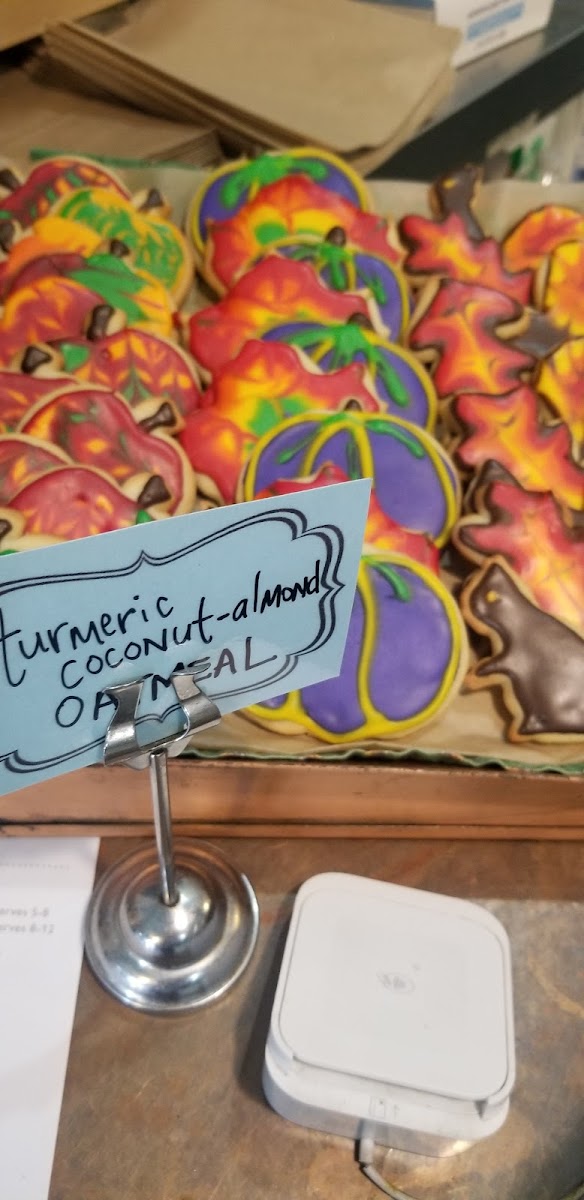 turmeric
coconut-almond
OATMEAL
erves 5-8
erves 8-12